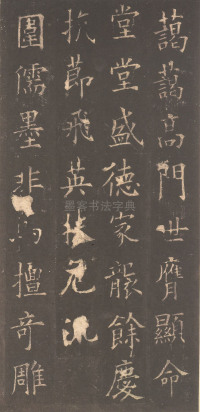 藹藹高門世膺顯命
堂堂盛德家襲餘慶
抗莭飛英
圍儒墨非擅奇雕
墨客书法字典